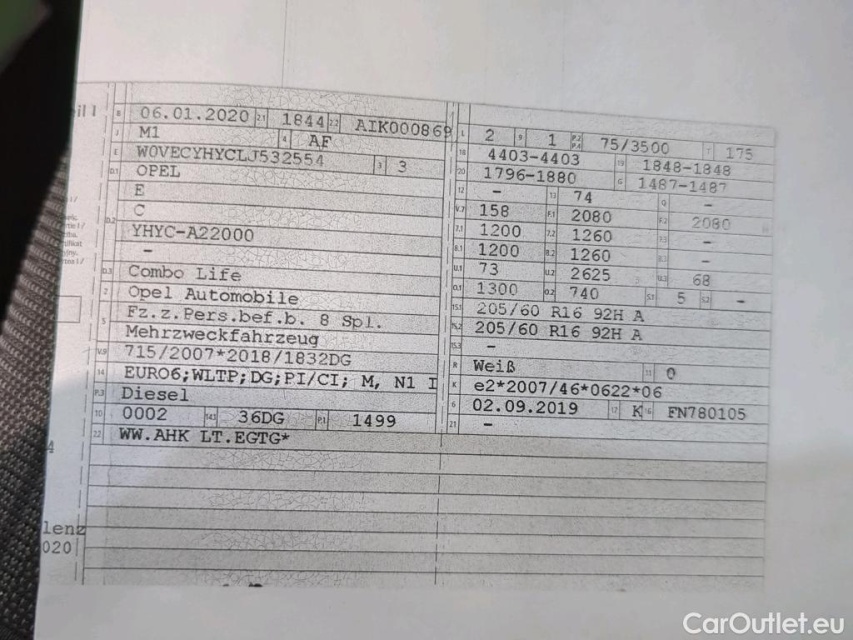 06.01.2020 2.1 1844 2.2 AIK000869
J M1 4 AF
E W0VECYHYCLJ532554 3 3
D.1 OPEL
E
D.2 C
YHYC-A22000
–
D.3 Combo Life
2 Opel Automobile
5 Fz.z.Pers.bef.b. 8 Spl.
Mehrzweckfahrzeug
V.9 715/2007*2018/1832DG
14 EURO6;WLTP;DG;PI/CI; M, N1 I
P.3 Diesel
10 0002 14.1 36DG P.1 1499
22 WW.AHK LT.EGTG*
L 2 9 1 P.2 P.4 75/3500 T 175
18 4403-4403 19 1848-1848
20 1796-1880 G 1487-1487
12 – 13 74 Q –
V.7 158 F.1 2080 F.2 2080
7.1 1200 7.2 1260 7.3 –
8.1 1200 8.2 1260 8.3 –
U.1 73 U.2 2625 U.3 68
O.1 1300 O.2 740 S.1 5 S.2 –
15.1 205/60 R16 92H A
15.2 205/60 R16 92H A
15.3 –
R Weiß 11 0
K e2*2007/46*0622*06
6 02.09.2019 17 K 16 FN780105
21 –
lenz
020
CarOutlet.eu